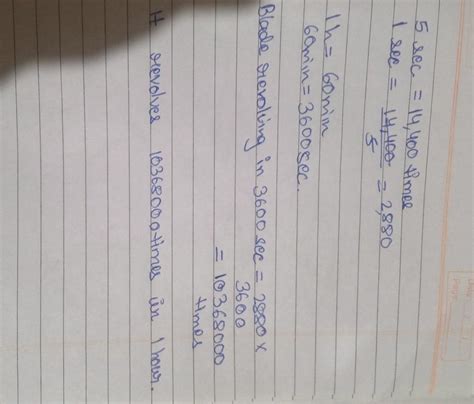 5 sec = 14,400 times
1 sec = 14,400 / 5 = 2,880
1h = 60min
60min = 3600sec.
Blade revolving in 3600 sec = 2880 x
3600
= 10368000
times
It revolves 10368000 times in 1 hour.